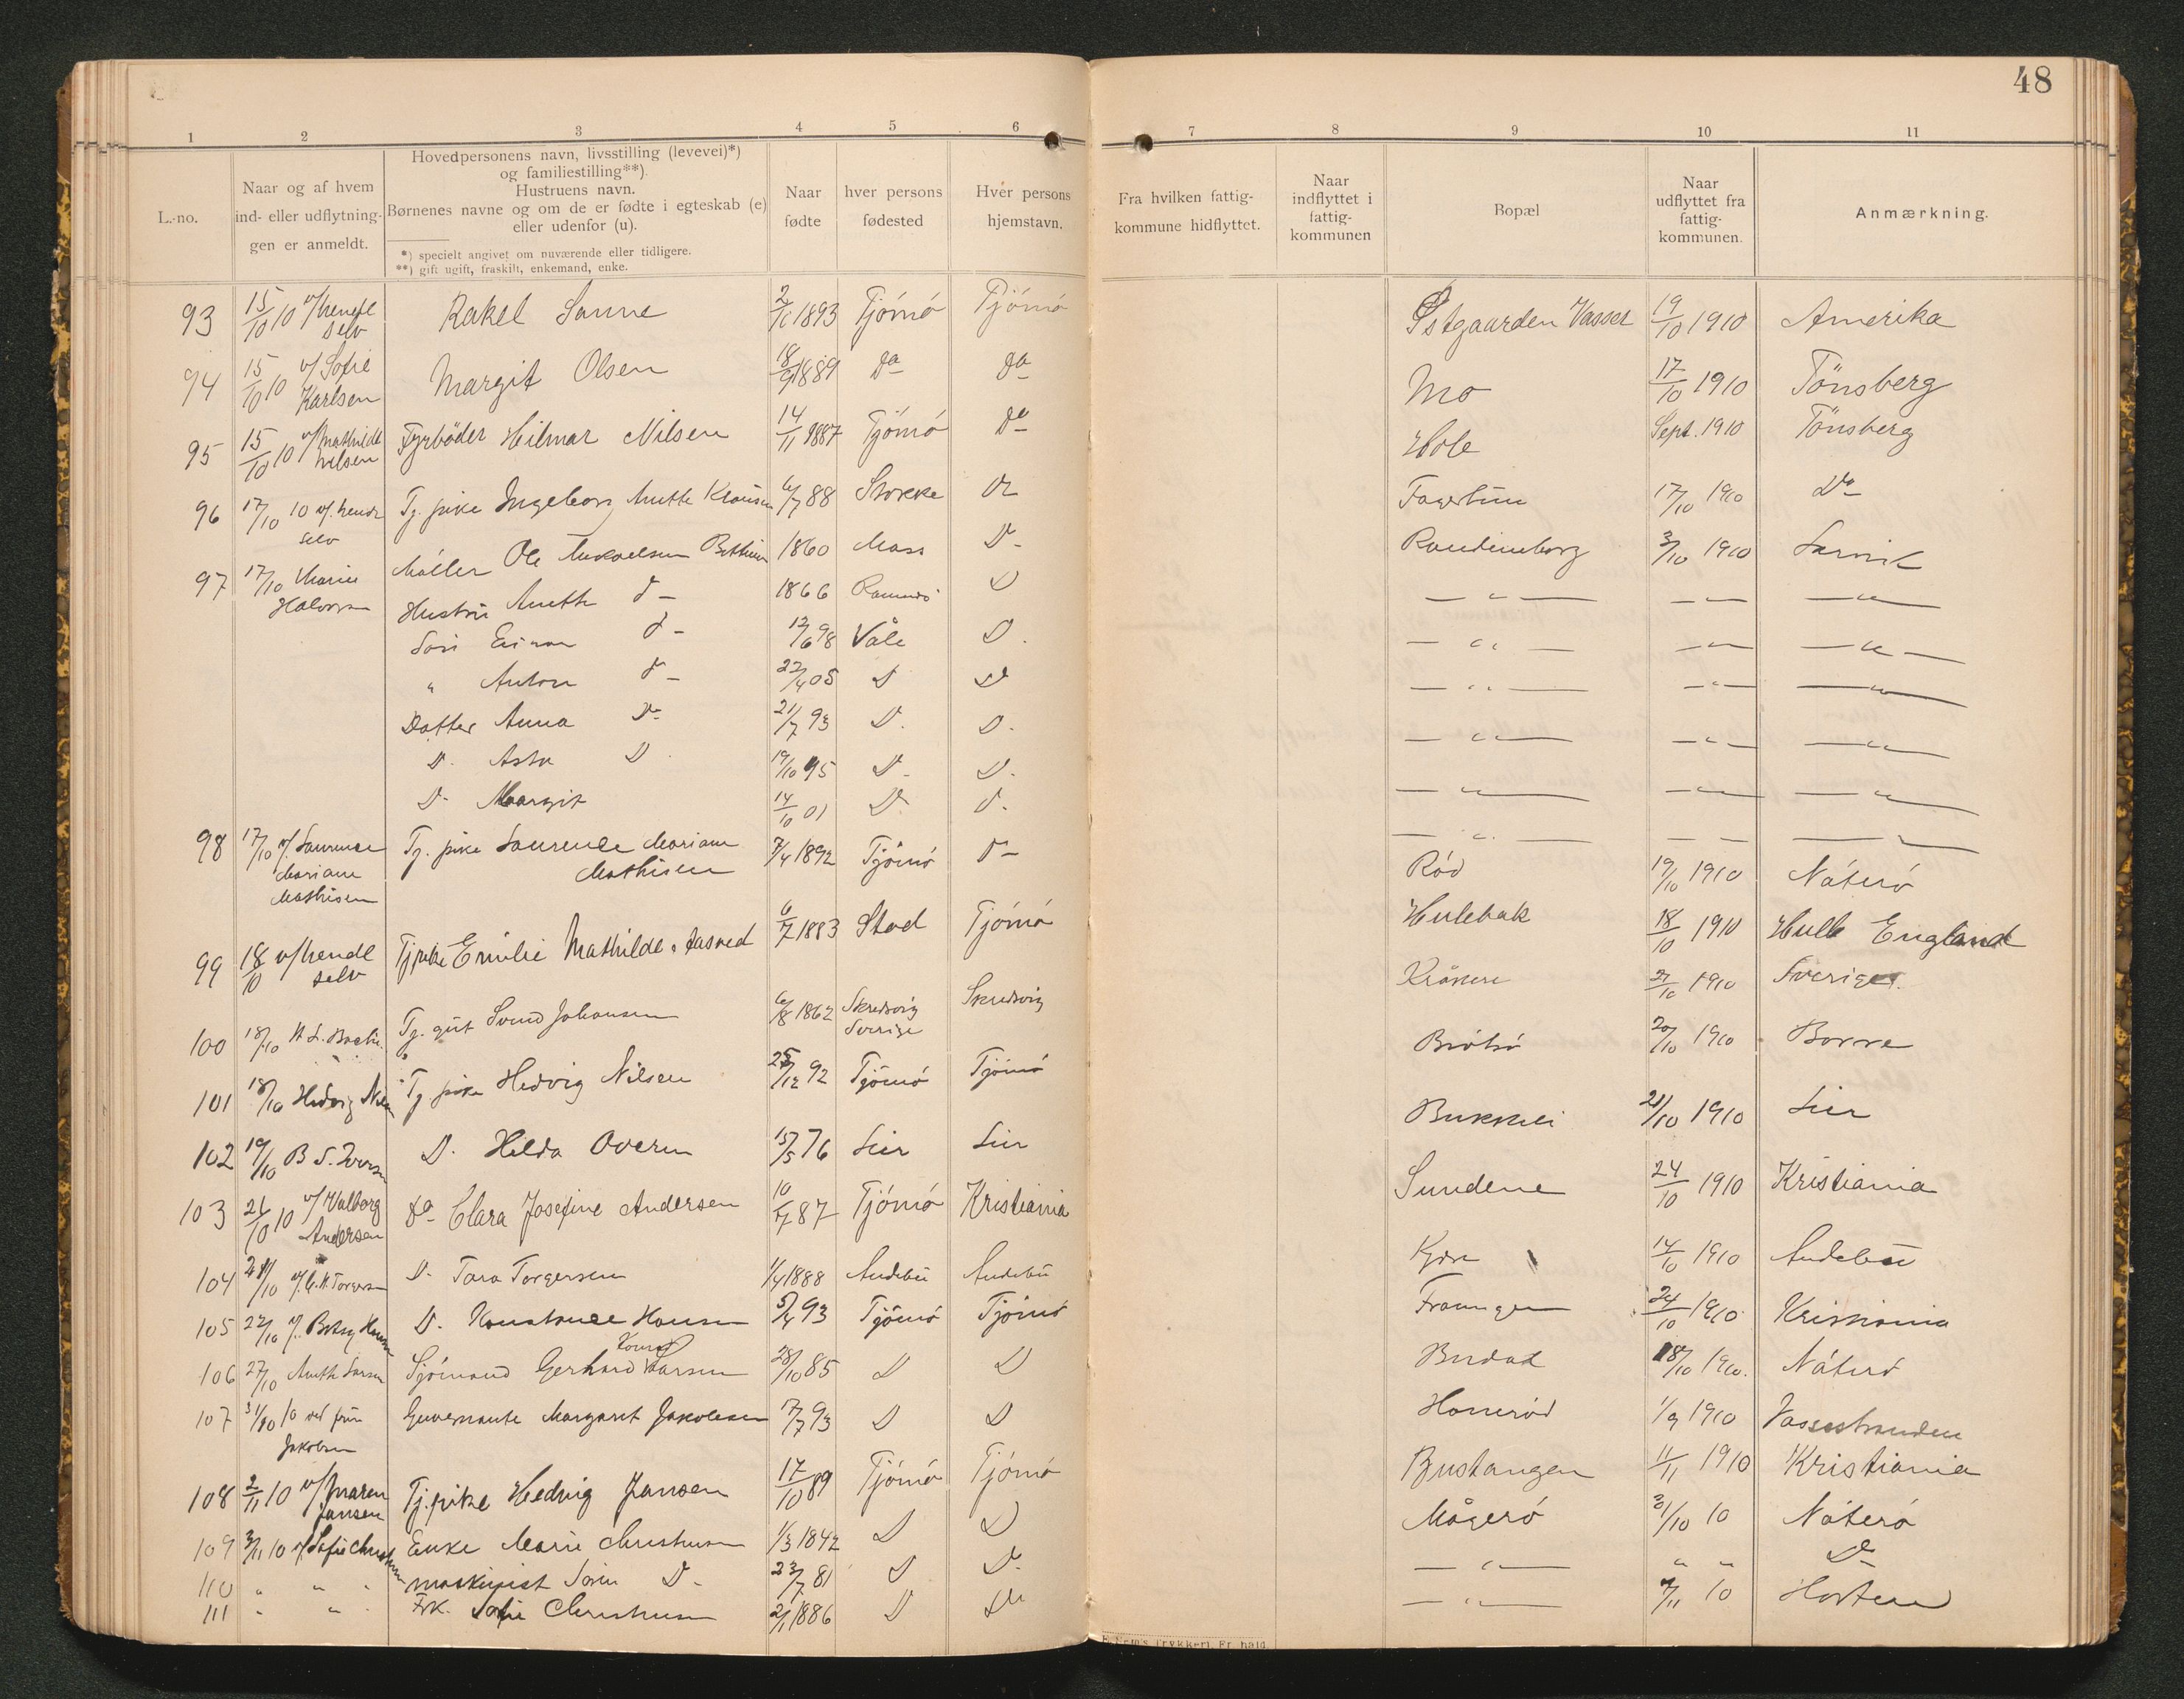 48
1 2 3 4 5 6 7 8 9 10 11
L.-no.
Naar og af hvem
ind- eller udflytnin-
gen er anmeldt.
Hovedpersonens navn, livsstilling (levevei)*)
og familiestilling**)
Hustruens navn.
Børnenes navne og om de er fødte i egteskab (e)
eller udenfor (u).
*) specielt angivet om nuværende eller tidligere.
**) gift ugift, fraskilt, enkemand, enke.
Naar
fødte
hver persons
fødested
Hver persons
hjemstavn.
Fra hvilken fattig-
kommune hidflyttet.
Naar
indflyttet i
fattig-
kommunen
Bopæl
Naar
udflyttet fra
fattig-
kommunen.
Anmærkning.
93 15/10 10 v/ hende selv Rakel Sanne 1893 Tjömö Tjömö Østgaarden Vasser 19/10 1910 Amerika
94 15/10 10 v/ Sofie Karlsen Margit Olsen 18/9 1889 Do Do Mo 17/10 1910 Tönsberg
95 15/10 10 v/ Mathilde Nilsen Fyrböder Hilmar Nilsen 14/11 1887 Tjömö Do Hole Sept. 1910 Tönsberg
96 17/10 10 v/ hende selv Tj. pike Ingeborg Anette Klausen 6/7 88 Stokke Do Fagertun 17/10 1910 Do
97 17/10 Marie Halvorsen Möller Ole Mikaelsen 1860 Moss D- 3/10 1910 Larvik
Hustru Anette d- 1866 Ramnes D — " — — " — — " —
Sön Einar d- 12/6 98 Våle D. — " — — " — — " —
" Anton d- 22/4 05 D D — " — — " — — " —
Datter Anna D- 21/7 93 D. D. — " — — " — — " —
D. Asta D 19/10 95 D- D. — " — — " — — " —
D- Margit 14/10 01 D d- — " — — — — —
98 17/10 v/ Laurence Mariane Mathisen Tj. pike Laurence Mariane Mathisen 7/4 1892 Tjömö D- Röd 19/10 1910 Nöterö
99 18/10 v/ hende selv Tj pike Emilie Mathilde 6/7 1883 Stod Tjömö Hulebak 18/10 1910 Hull England
100 18/10 Tj. gut Svend Johansen 6/8 1862 Skredsvig Sverige Skredsvig 1910 Sverige
101 18/10 Hedvig Nilsen Tj pike Hedvig Nilsen 25/12 92 Tjömö Tjömö Brötsö 20/10 1910 Borre
102 19/10 B S. Iversen D. Hilda Overn 15/5 76 Lier Lier 21/10 1910 Lier
103 21/10 10 v/ Valborg Andersen Do Clara Josefine Andersen 10/7 87 Tjömö Kristiania Sundene 24/10 1910 Kristiania
104 v/ Torgersen D- Tora Torgersen 1/4 1888 Andebu Andebu 14/10 1910 Andebu
105 22/10 v/ Betsy Hansen D. Konstanse Hansen 5/4 93 Tjömö Tjömö 24/10 1910 Kristiania
106 27/10 Anette Larsen Sjömand Gerhard Konrad Larsen 28/10 85 D D Budal 18/10 1910. Nöterö
107 31/10 10 ved fru Jakobsen Guvernante Margaret Jakobsen 7/7 93 D D Honeröd 1/9 1910 Vassesstranden
108 2/11 10 v/ Maren Jansen Tj. pike Hedvig Jansen 17/10 89 Tjömö Tjömö Bustangen 11/11 1910 Kristiania
109 3/11 10 v/ Sofie Christensen Enke Marie Christensen 1/3 1842 D D Mågerö 31/10 10 Nöterö
110 " " " maskinist Sören D- 23/7 81 D D- — " — " " Do
111 " " " Frk. Sofie Christensen 2/1 1886 D Do — " — 10 Horten